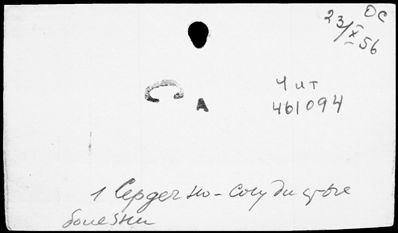 ОС
23/X 56
С А
Чит
461094
1 Сердечно-сосудистые
болезни